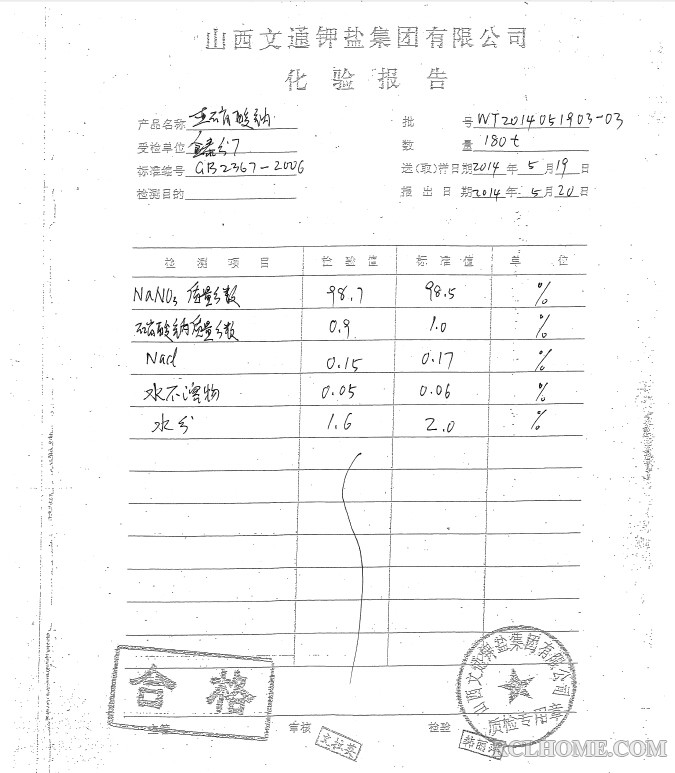 山西文通钾盐集团有限公司
化验报告
产品名称 亚硝酸钠
批号 WT2014051903-03
受检单位
数量 180t
标准编号 GB2367-2006
送(取)样日期 2014年5月19日
检测目的
报出日期 2014年5月20日
检测项目 检验值 标准值 单位
NaNO3 质量分数 98.7 98.5 %
硝酸钠质量分数 0.9 1.0 %
Nacl 0.15 0.17 %
水不溶物 0.05 0.06 %
水分 1.6 2.0 %
合格
山西文通钾盐集团有限公司
质检专用章
审核
检验
RCLHOME.COM